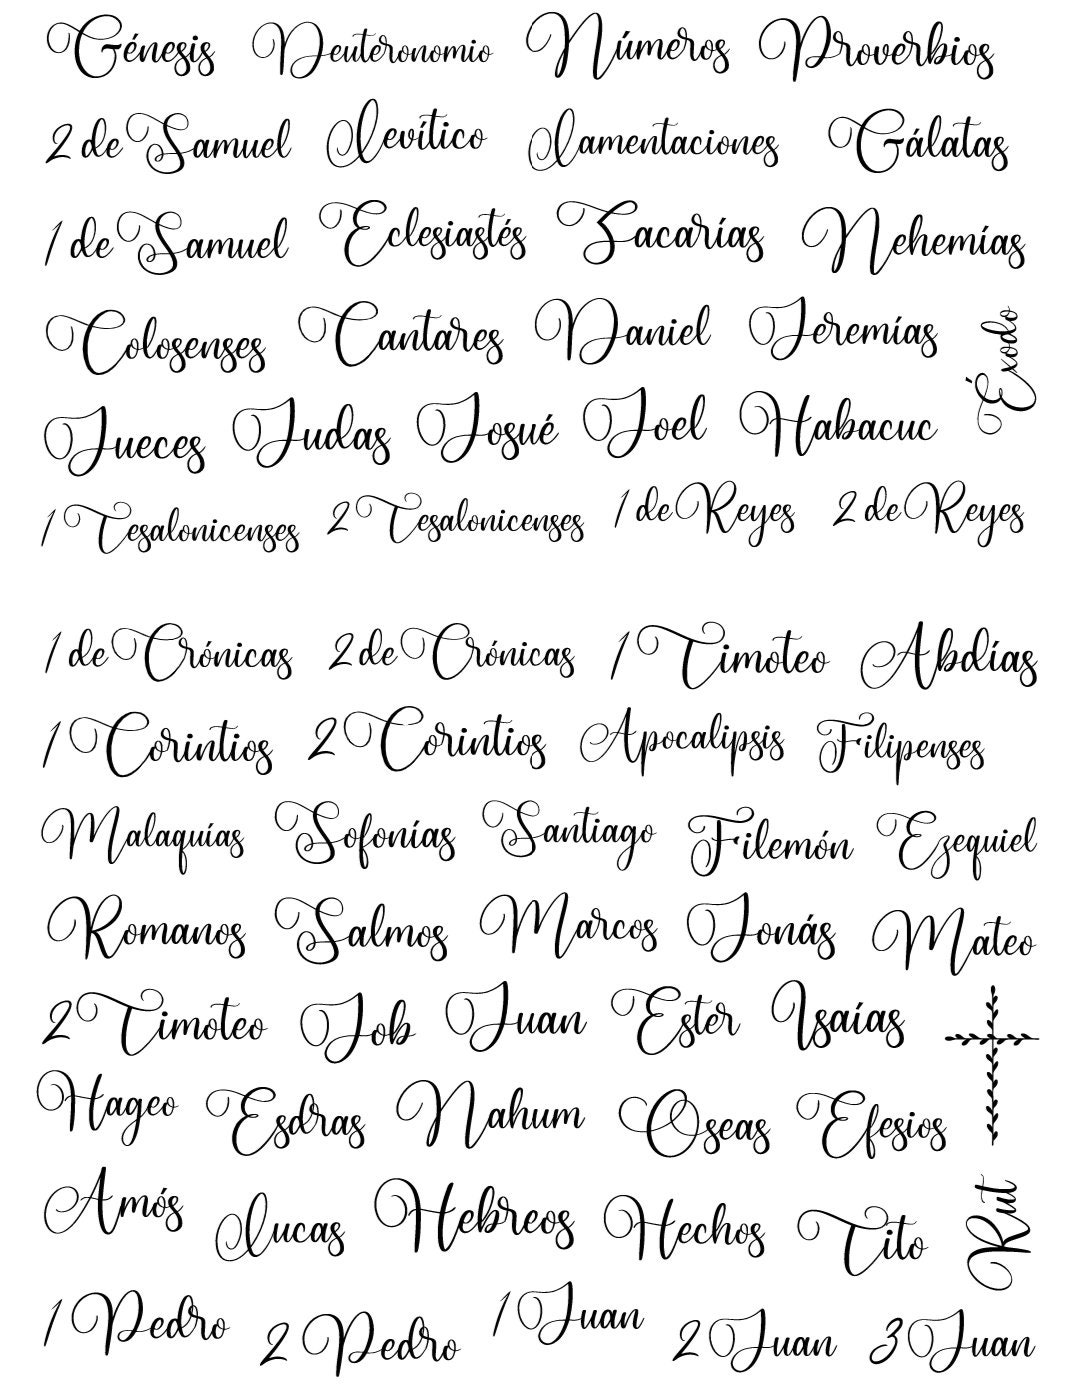 Génesis Deuteronomio Números Proverbios
2 de Samuel Levítico Lamentaciones Gálatas
1 de Samuel Eclesiastés Zacarías Nehemías
Colosenses Cantares Daniel Jeremías
Éxodo
Jueces Judas Josué Joel Habacuc
1 Tesalonicenses 2 Tesalonicenses 1 de Reyes 2 de Reyes
1 de Crónicas 2 de Crónicas 1 Timoteo Abdías
1 Corintios 2 Corintios Apocalipsis Filipenses
Malaquías Sofonías Santiago Filemón Ezequiel
Romanos Salmos Marcos Jonás Mateo
2 Timoteo Job Juan Ester Isaías
Hageo Esdras Nahum Oseas Efesios
Amós Lucas Hebreos Hechos Tito
Rut
1 Pedro 2 Pedro 1 Juan 2 Juan 3 Juan